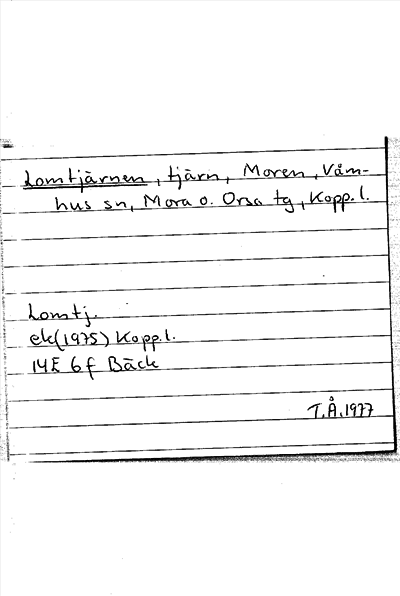 Lomtjärnen, tjärn, Moren, Våm-
hus sn, Mora o. Orsa tg, Kopp. l.
Lomtj.
ek(1975) Kopp. l.
14E 6f Bäck
T.Å. 1977